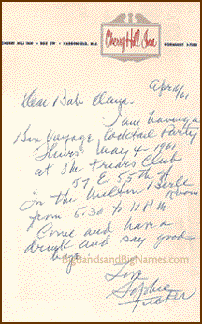 CHERRY HILL INN • BOX 779 • HADDONFIELD, N.J.
Cherry Hill Inn
NORMANDY 2-7200
April/61
Dear Bab
I am having a
Bon Voyage Cocktail Party
Thurs May 4 - 1961
at the Friars Club
57 E 55th St
In the Milton Berle
Room
from 5:30 to 11 P.M.
Come and have a
drink and say good
bye
Love
Sophie
Tucker
BigBandsandBigNames.com